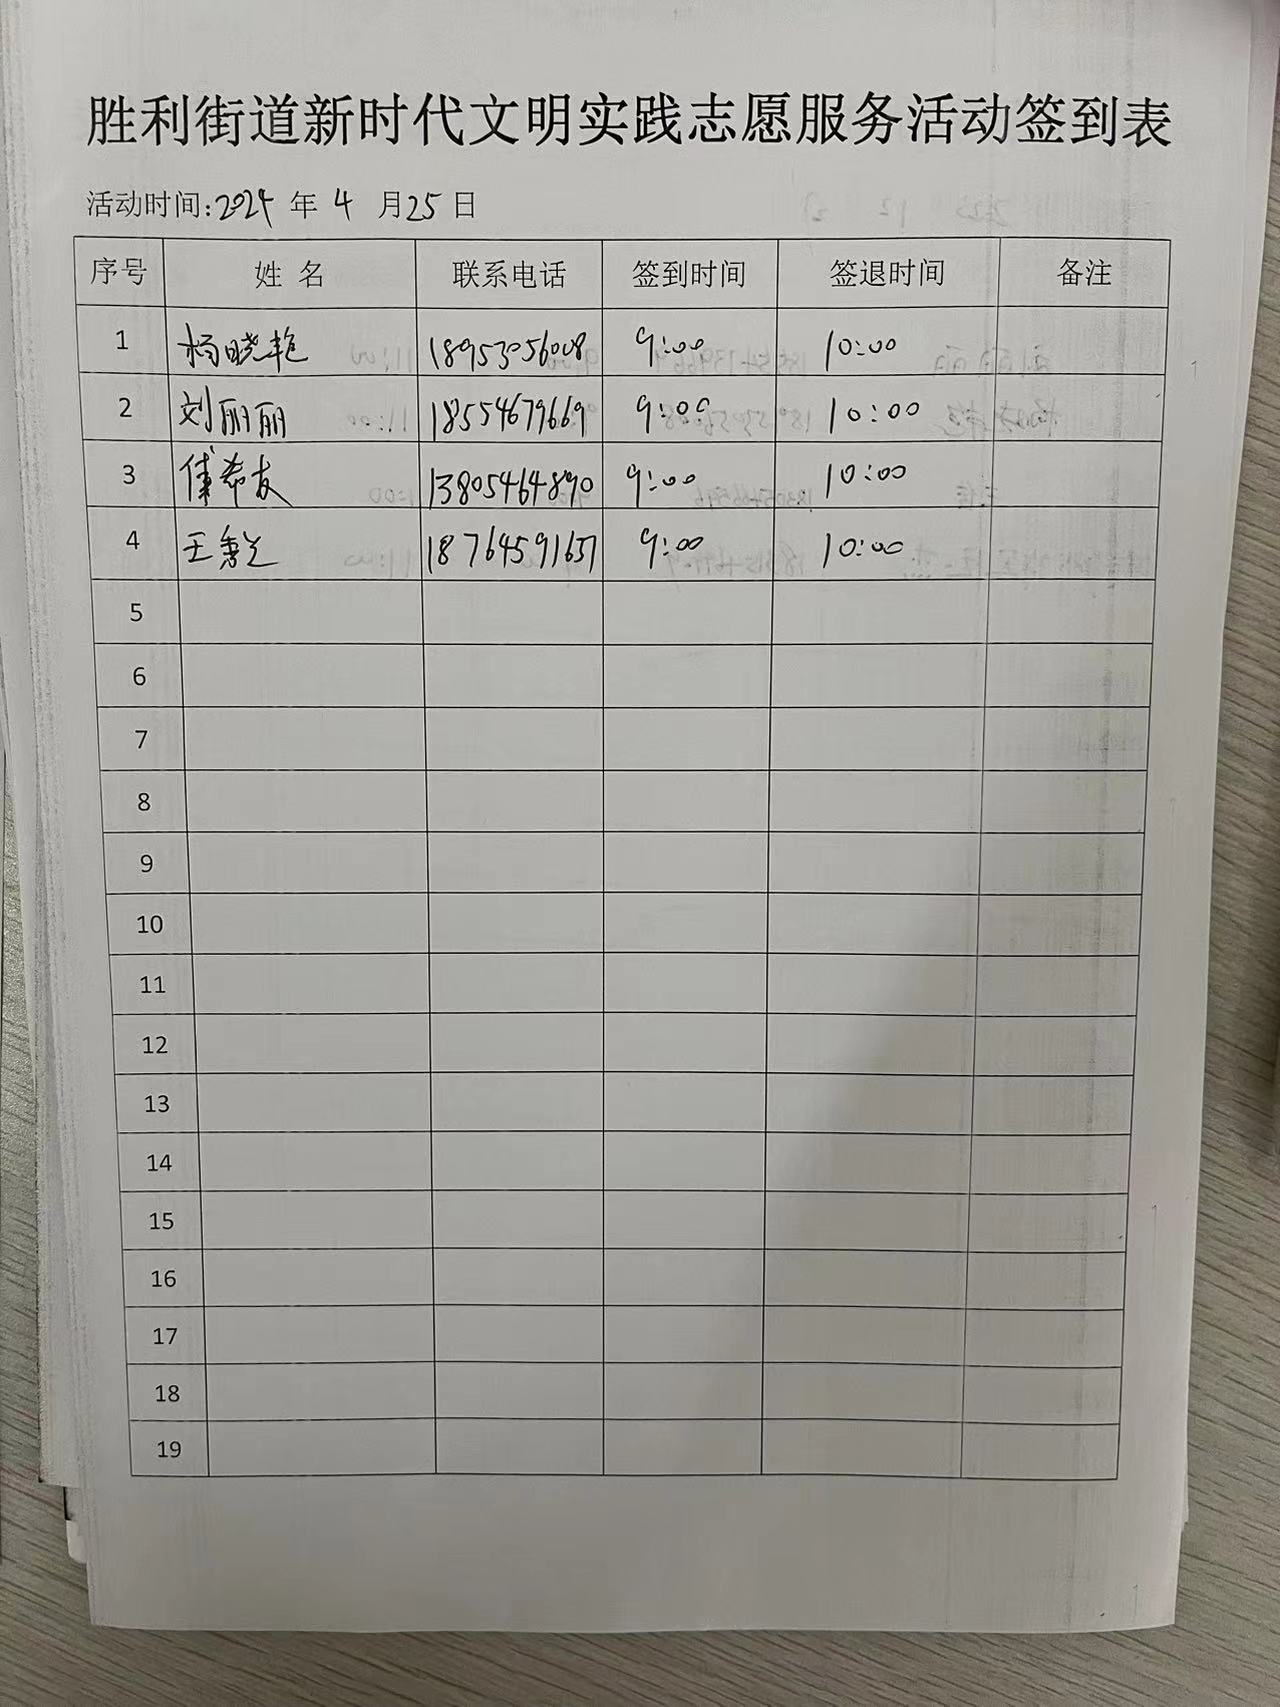 胜利街道新时代文明实践志愿服务活动签到表
活动时间:2024 年 4 月 25 日
序号 姓 名 联系电话 签到时间 签退时间 备注
1 杨晓艳 18953056008 9:00 10:00
2 刘丽丽 18554679669 9:00 10:00
3 傅希友 13805464890 9:00 10:00
4 王秀兰 18764591657 9:00 10:00
5
6
7
8
9
10
11
12
13
14
15
16
17
18
19